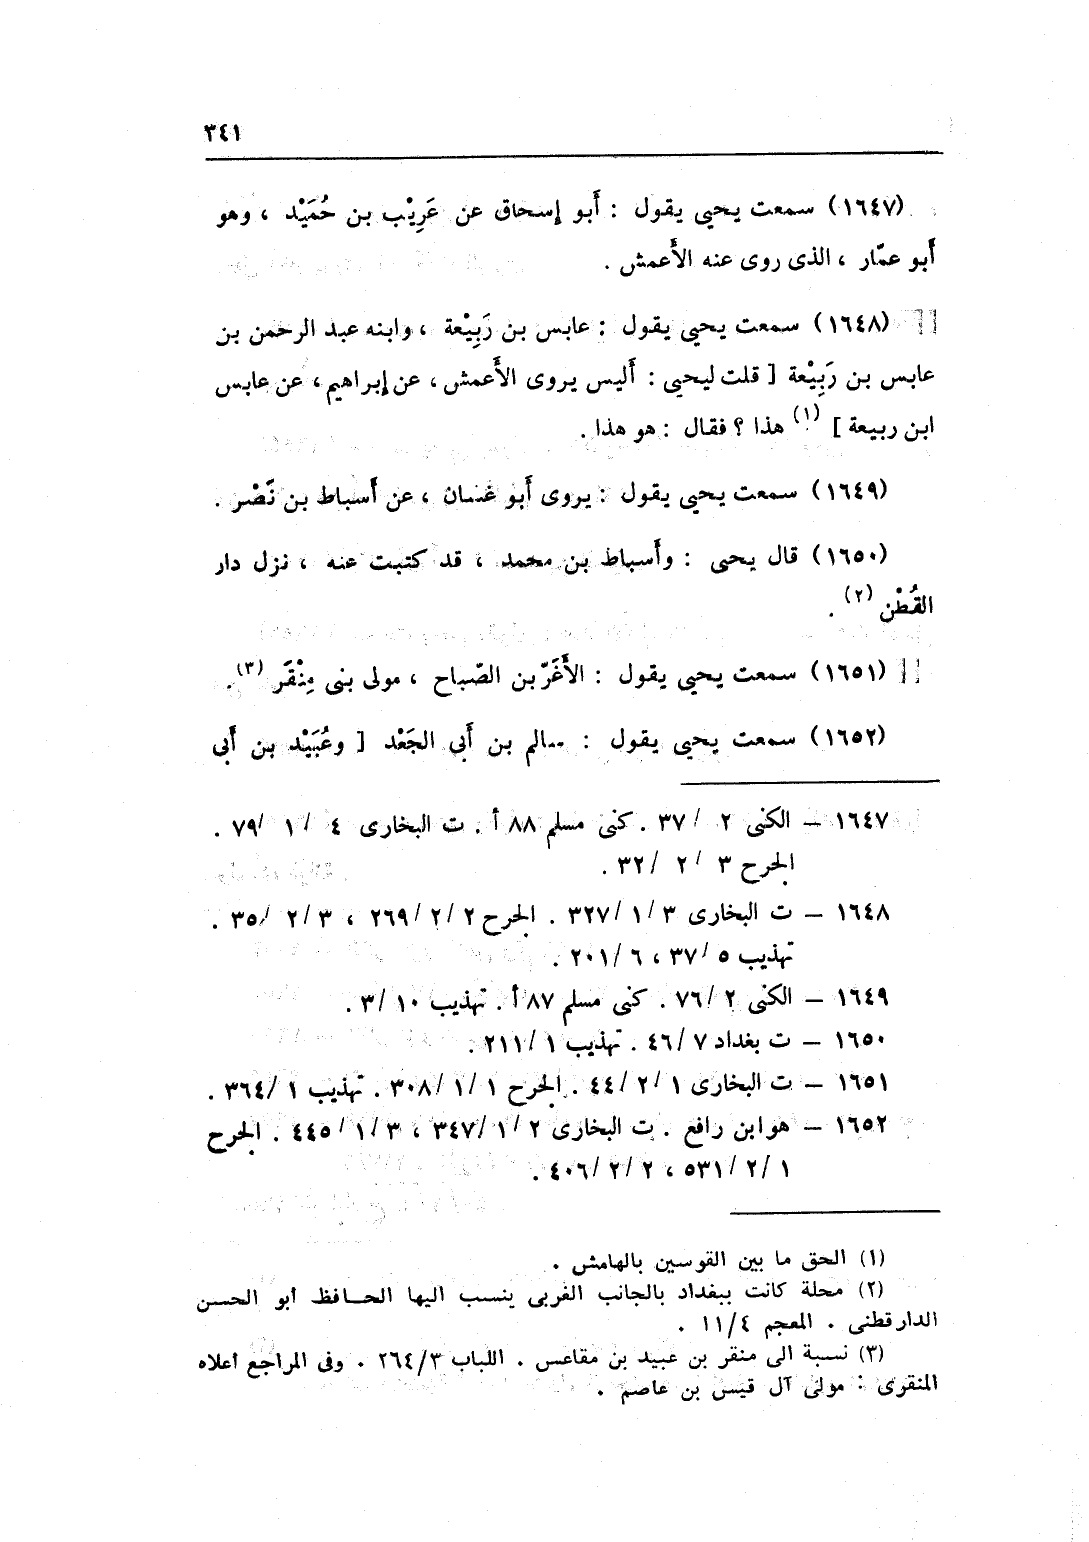 ٣٤١
(١٦٤٧) سمعت يحيى يقول : أَبو إسحاق عن عَرِيْب بن حُمَيْد ، وهو
أَبو عمّار ، الذى روى عنه الأَعمش .
(١٦٤٨) سمعت يحيى يقول : عابس بن رَبِيْعة ، وابنه عبد الرحمن بن
عابس بن رَبِيْعة [ قلت ليحيى : أَليس يروى الأَعمش ، عن إبراهيم ، عن عابس
ابن ربيعة ] (١) هذا ؟ فقال : هو هذا .
(١٦٤٩) سمعت يحيى يقول : يروى أَبو غسان ، عن أَسباط بن نَصْر .
(١٦٥٠) قال يحيى : وأَسباط بن محمد ، قد كتبت عنه ، نزل دار
القُطْن (٢) .
(١٦٥١) سمعت يحيى يقول : الأَغَرّ بن الصّباح ، مولى بنى مِنْقَر (٣) .
(١٦٥٢) سمعت يحيى يقول : سالم بن أَبى الجَعْد [ وعُبَيْد بن أَبى
١٦٤٧ – الكنى ٢ / ٣٧ . كنى مسلم ٨٨ أ . ت البخارى ٤ / ١ / ٧٩ .
الجرح ٣ / ٢ / ٣٢ .
١٦٤٨ – ت البخارى ٣ / ١ / ٣٢٧ . الجرح ٢ / ٢ / ٢٦٩ ، ٣ / ٢ / ٣٥ .
تهذيب ٥ / ٣٧ ، ٦ / ٢٠١ .
١٦٤٩ – الكنى ٢ / ٧٦ . كنى مسلم ٨٧ أ . تهذيب ١٠ / ٣ .
١٦٥٠ – ت بغداد ٧ / ٤٦ . تهذيب ١ / ٢١١ .
١٦٥١ – ت البخارى ١ / ٢ / ٤٤ . الجرح ١ / ١ / ٣٠٨ . تهذيب ١ / ٣٦٤ .
١٦٥٢ – هو ابن رافع . ت البخارى ٢ / ١ / ٣٤٧ ، ٣ / ١ / ٤٤٥ . الجرح
١ / ٢ / ٥٣١ ، ٢ / ٢ / ٤٠٦ .
(١) الحق ما بين القوسين بالهامش .
(٢) محلة كانت ببغداد بالجانب الغربى ينسب اليها الحافظ أبو الحسن
الدارقطنى . المعجم ٤/١١ .
(٣) نسبة الى منقر بن عبيد بن مقاعس . اللباب ٢٦٤/٣ . وفى المراجع أعلاه
المنقرى : مولى آل قيس بن عاصم .